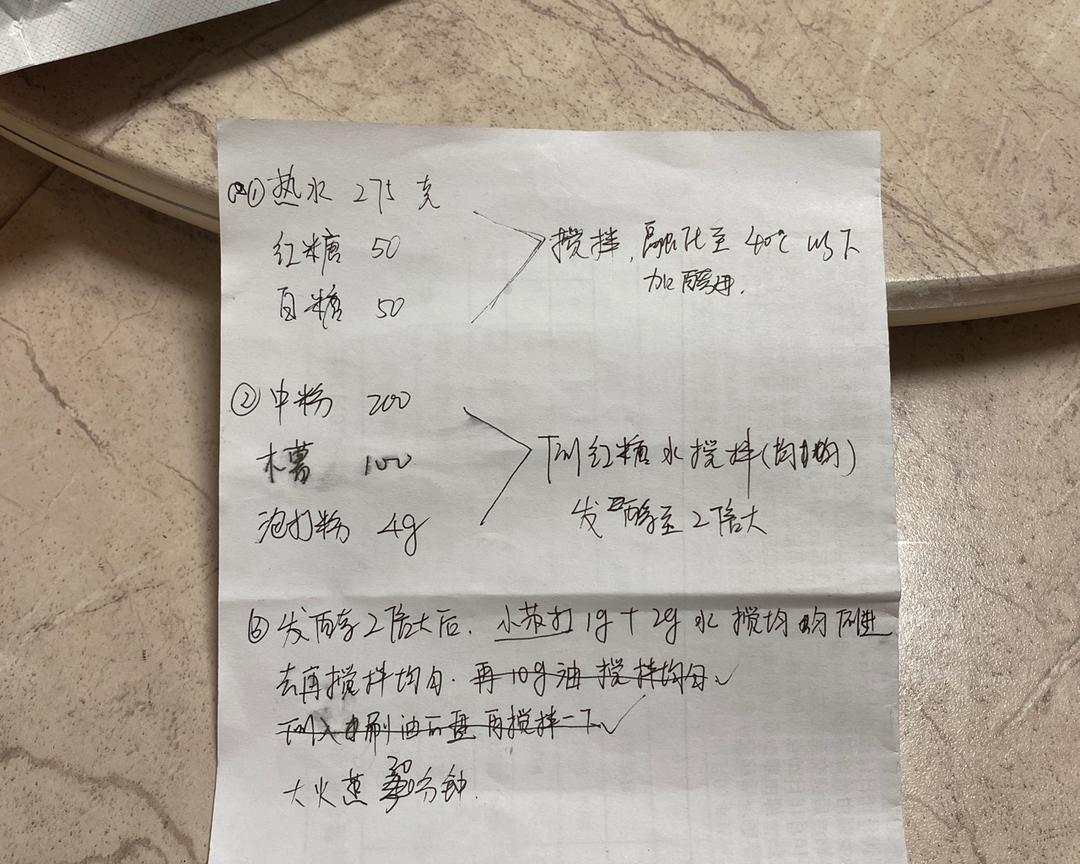 ①热水 275 克
红糖 50
白糖 50
搅拌,融化至 40℃ 以下
加酵母.
②中粉 200
木薯 100
泡打粉 4g
下入红糖水搅拌(均匀)
发酵至 2倍大
③发酵2倍大后. 小苏打 1g + 2g 水 搅均匀 倒进
去再搅拌均匀. 再10g油 搅拌均匀✓
倒入刷油的盘 再搅拌一下✓
大火蒸 30分钟.